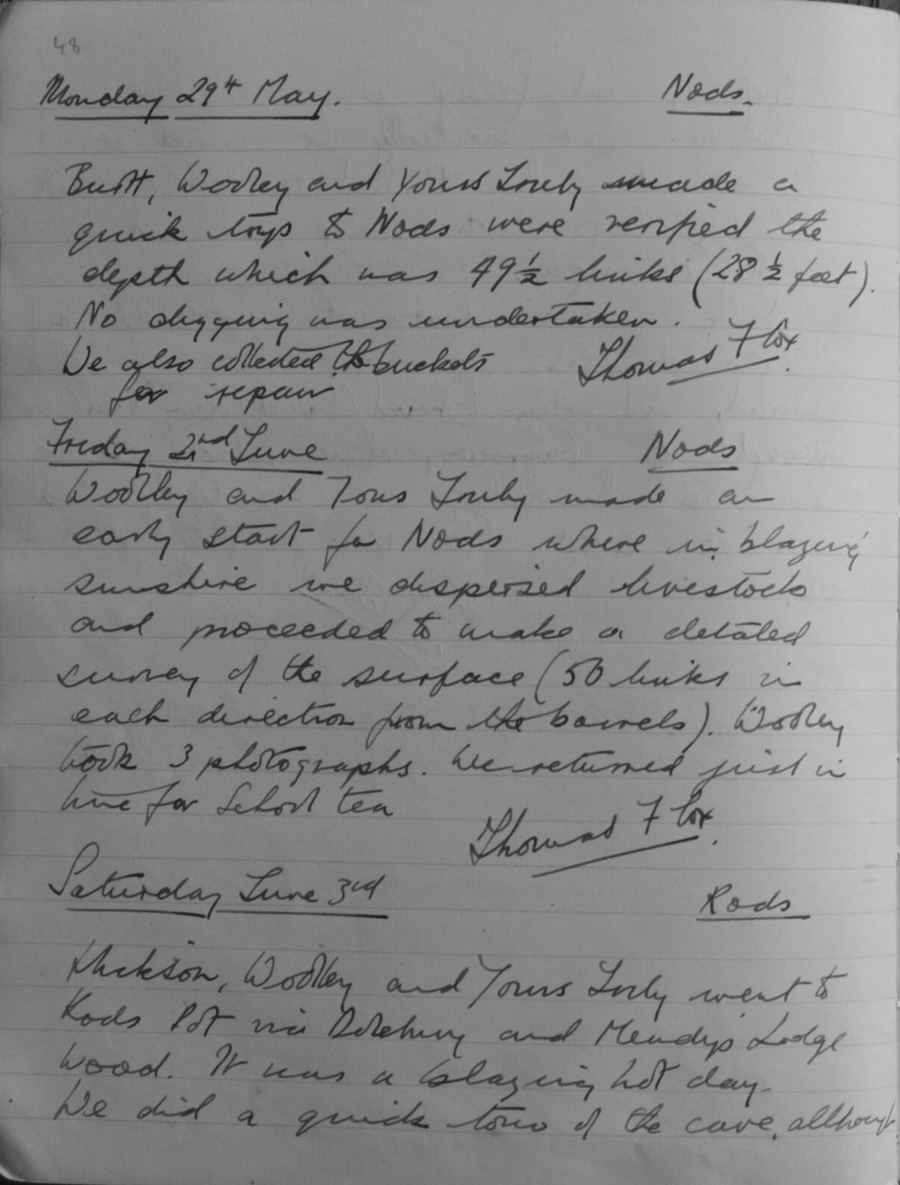 48
Monday 29th May. Nods.
Butt, Woolley and Yours Truly made a
quick trip to Nods were verified the
depth which was 49 ½ links (28 ½ feet).
No digging was undertaken.
We also collected the buckets Thomas F Cox.
for repair
Friday 2nd June Nods
Woolley and Yours Truly made an
early start for Nods where in blazing
sunshine we dispersed livestock
and proceeded to make a detailed
survey of the surface (50 links in
each direction from the barrels). Woolley
took 3 photographs. We returned just in
time for School tea
Thomas F Cox.
Saturday June 3rd Rods
Woolley and Yours Truly went to
Rods Pot via and Mendip Lodge
Wood. It was a blazing hot day.
We did a quick tour of the cave, although